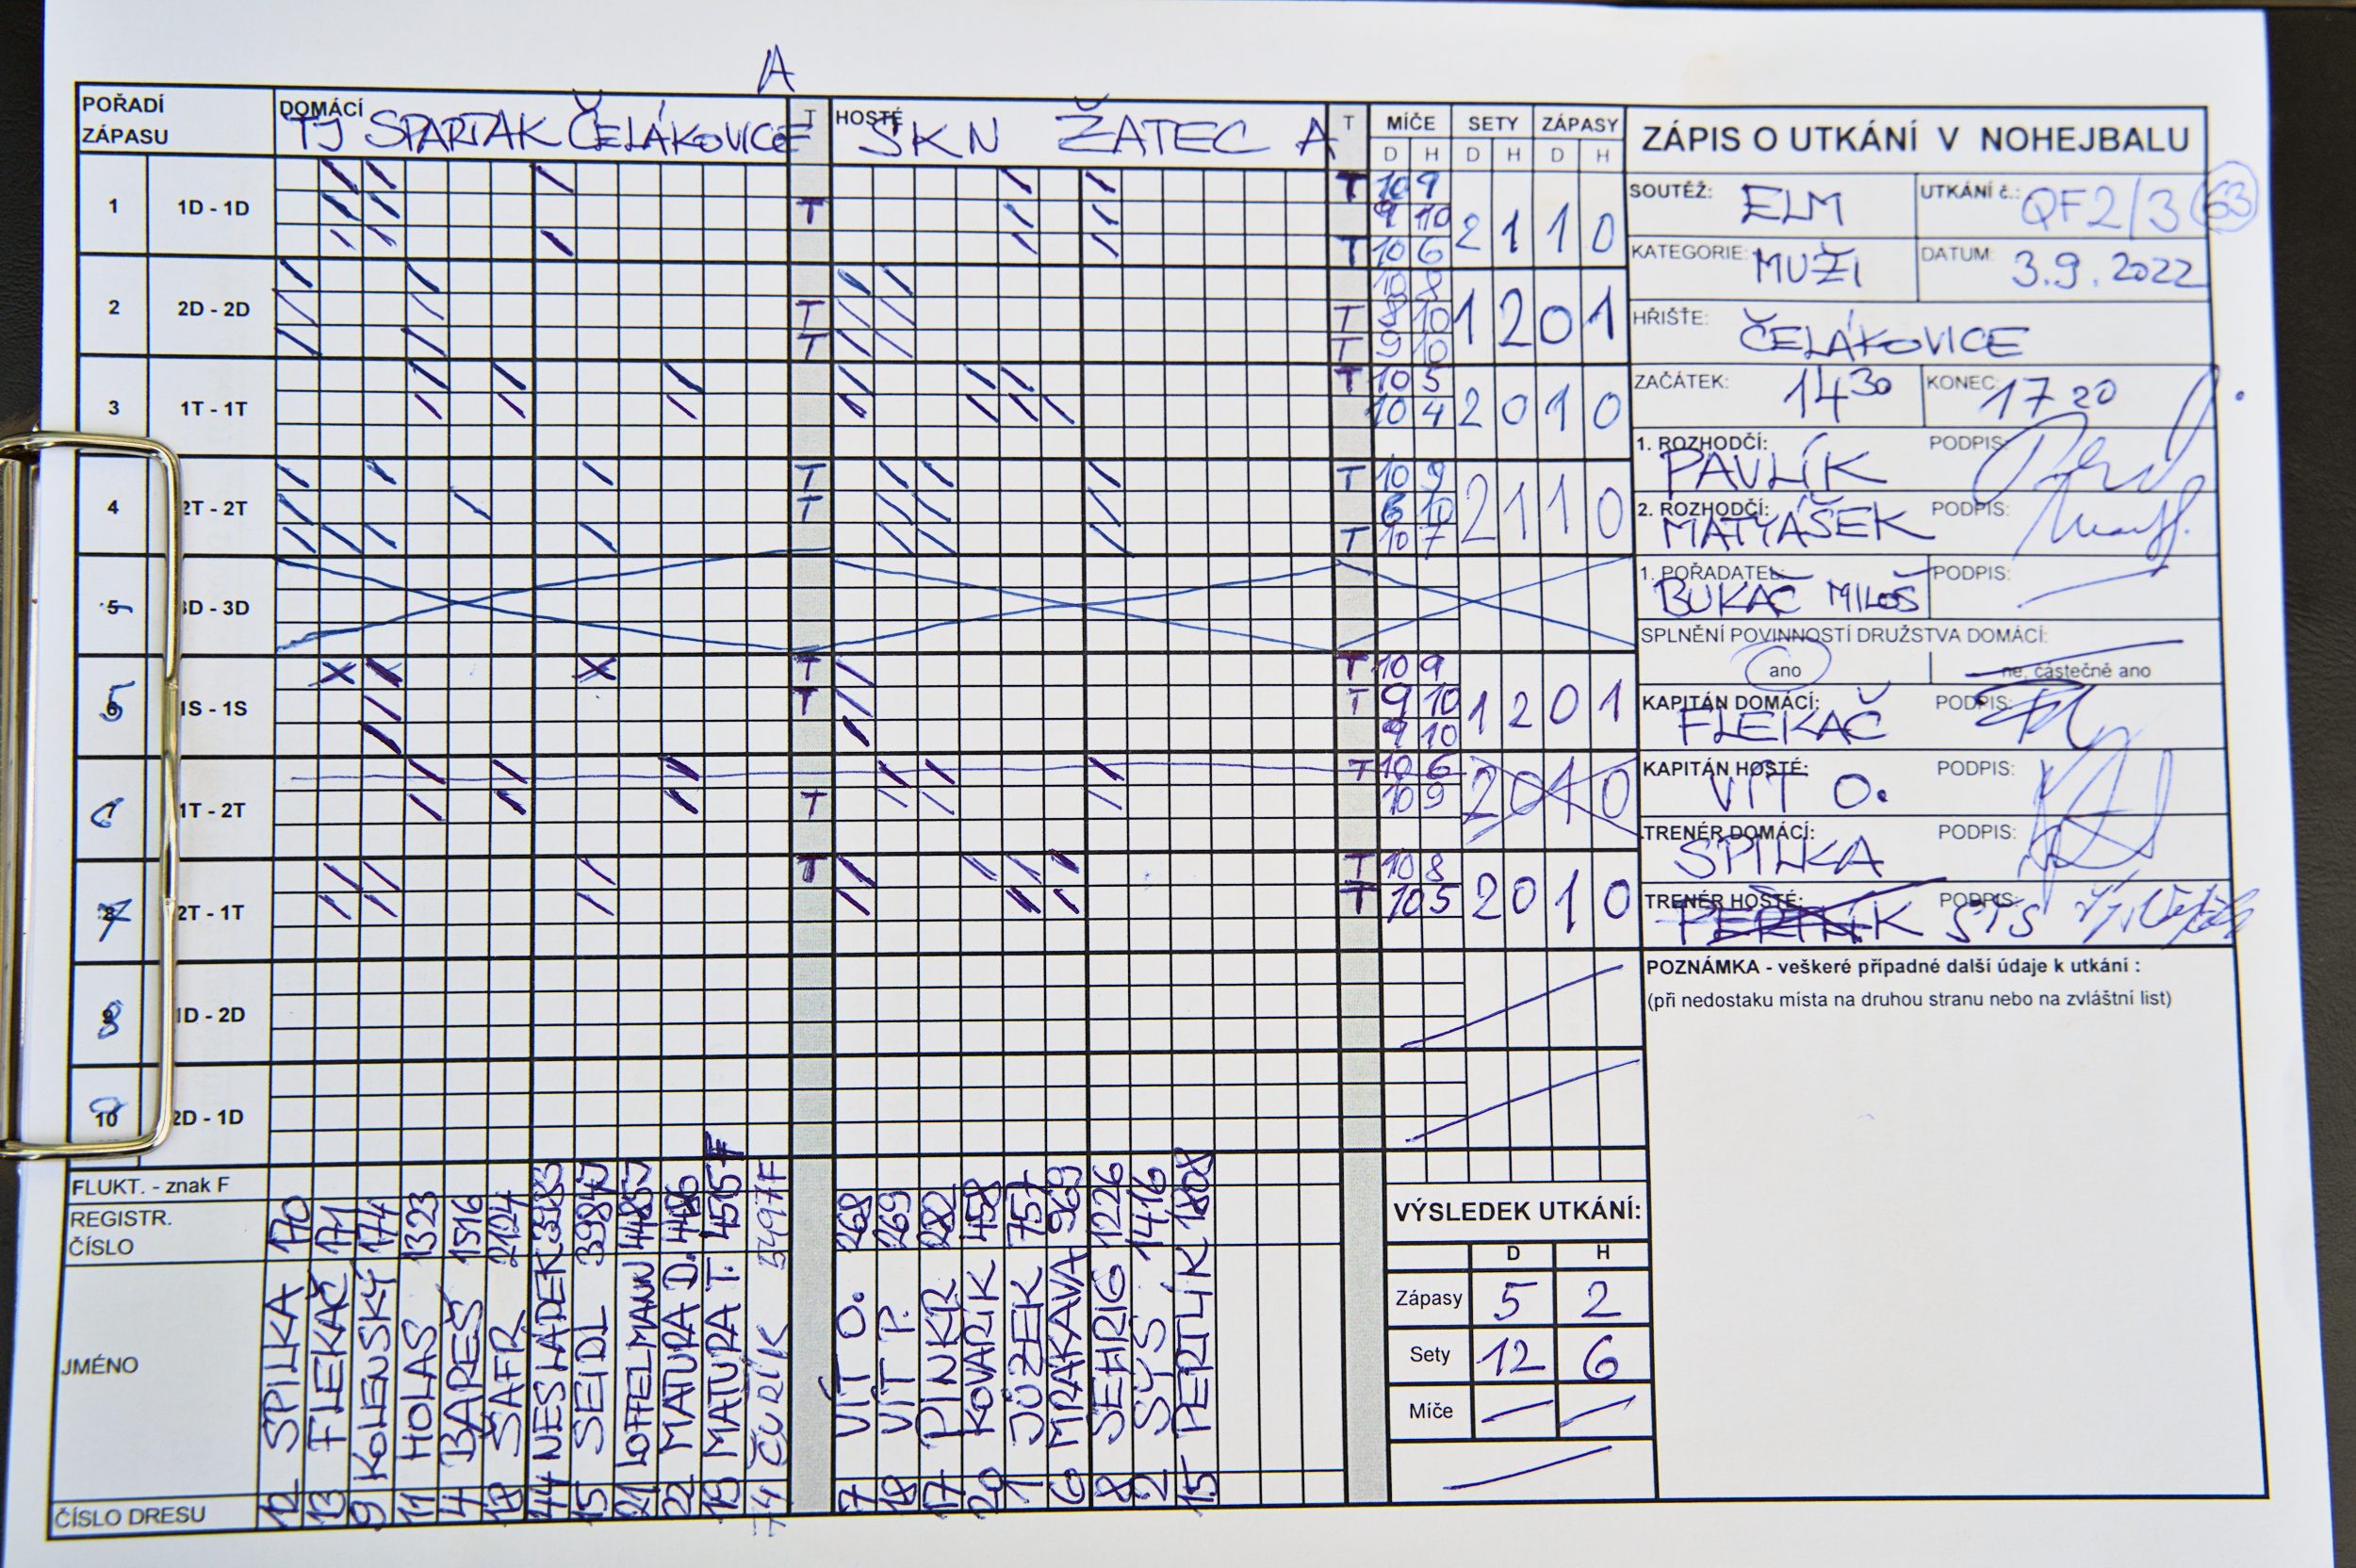 A
POŘADÍ ZÁPASU
DOMÁCÍ TJ SPARTAK ČELÁKOVICE T
HOSTÉ SKN ŽATEC A T
MÍČE SETY ZÁPASY
D H D H D H
1 1D - 1D
T 10 9
T 9 10 2 1 1 0
T 10 6
2 2D - 2D
10 8
T T 8 10 1 2 0 1
T T 9 10
3 1T - 1T
T 10 5
10 4 2 0 1 0
4 2T - 2T
T T 10 9
T 6 10 2 1 1 0
T 10 7
5 3D - 3D
5 1S - 1S
T T 10 9
T T 9 10 1 2 0 1
9 10
6 1T - 2T
T 10 6
T 10 9 2 0 1 0
7 2T - 1T
T T 10 8
T 10 5 2 0 1 0
8 1D - 2D
10 2D - 1D
FLUKT. - znak F
REGISTR. ČÍSLO
JMÉNO
ČÍSLO DRESU
12 SPILKA 170
13 FLEKAČ 171
9 KOLENSKÝ 174
11 HOLAS 1323
4 BAREŠ 1516
18 ŠAFR 2124
44 NESLÁDEK
15 SEIDL
21 LOFFELMANN
22 MATURA D.
13 MATURA T. 4515 F
74 ČUŘÍK 5497 F
7 VÍT O. 268
18 VÍT P. 269
17 PINKR 282
20 KOVÁŘÍK 458
1 JŮZEK 757
6 MRÁKAVA 969
8 SEHRIG 1226
2 SÝS 1416
15 PERTLÍK 1808
ZÁPIS O UTKÁNÍ V NOHEJBALU
SOUTĚŽ: ELM UTKÁNÍ č.: QF2/3 63
KATEGORIE: MUŽI DATUM: 3.9.2022
HŘIŠTE: ČELÁKOVICE
ZAČÁTEK: 14 30 KONEC: 17 20
1. ROZHODČÍ: PAVLÍK PODPIS:
2. ROZHODČÍ: MATYÁŠEK PODPIS:
1. POŘADATEL: BUKAČ MILOŠ PODPIS:
SPLNĚNÍ POVINNOSTÍ DRUŽSTVA DOMÁCÍ:
ano ne, částečně ano
KAPITÁN DOMÁCÍ: FLEKAČ PODPIS:
KAPITÁN HOSTÉ: VÍT O. PODPIS:
TRENÉR DOMÁCÍ: SPILKA PODPIS:
TRENÉR HOSTÉ: SÝS PODPIS:
POZNÁMKA - veškeré případné další údaje k utkání :
(při nedostaku místa na druhou stranu nebo na zvláštní list)
VÝSLEDEK UTKÁNÍ:
D H
Zápasy 5 2
Sety 12 6
Míče